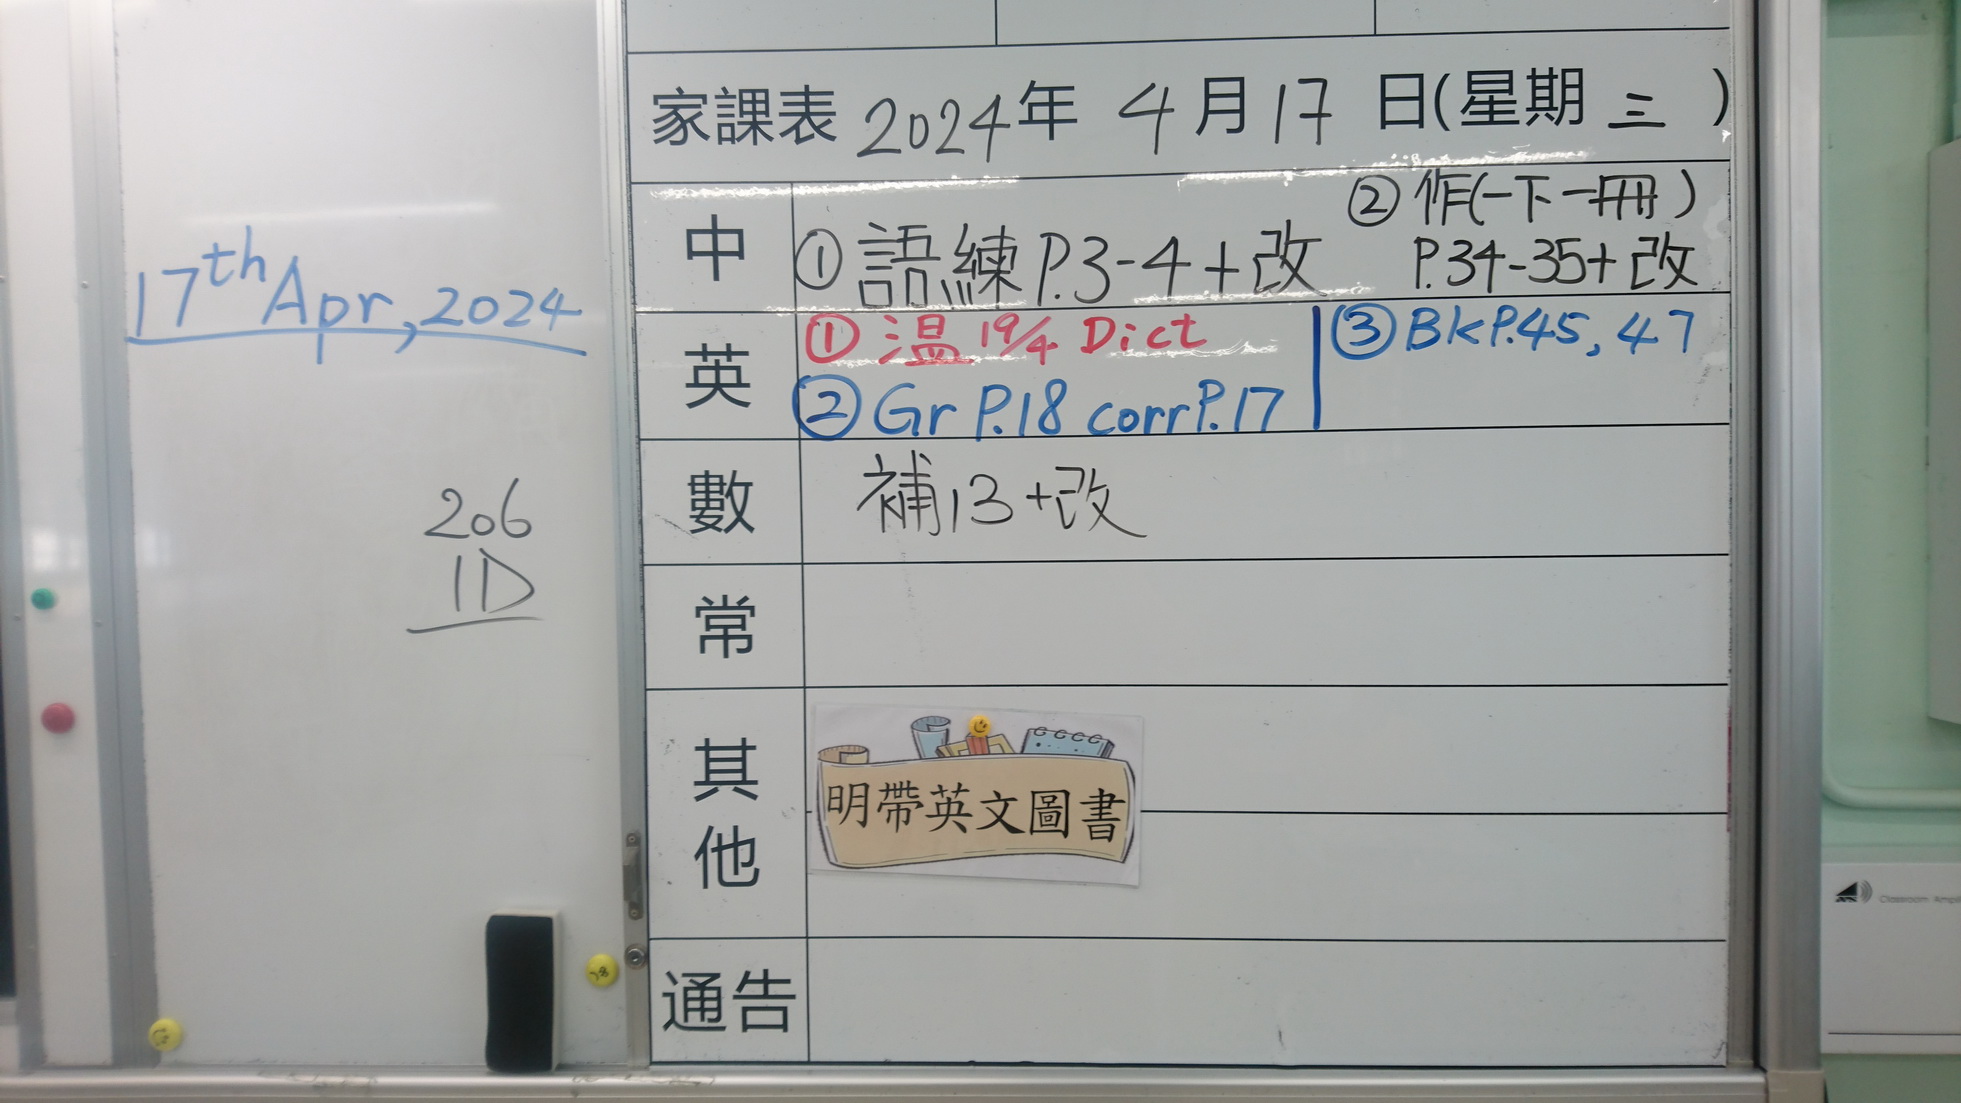 17th Apr, 2024
206
1D
家課表 2024年 4月17日(星期三)
中
①語練P.3-4+改
②作(一下一冊)
P.34-35+改
英
①温19/4 Dict
②Gr P.18 corrP.17
③BkP.45, 47
數
補13+改
常
其他
明帶英文圖書
通告
Classroom Ampli